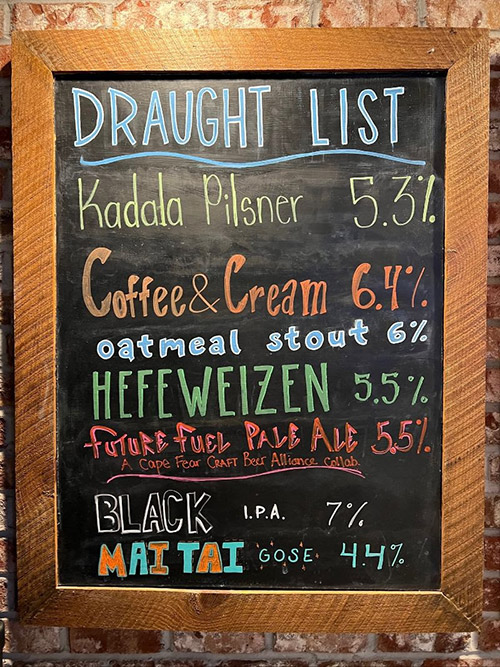 DRAUGHT LIST
Kadala Pilsner 5.3%
Coffee & Cream 6.4%
oatmeal stout 6%
HEFEWEIZEN 5.5%
FUTURE FUEL PALE ALE 5.5%
A Cape Fear CRAFT Beer Alliance collab.
BLACK I.P.A. 7%
MAI TAI GOSE 4.4%